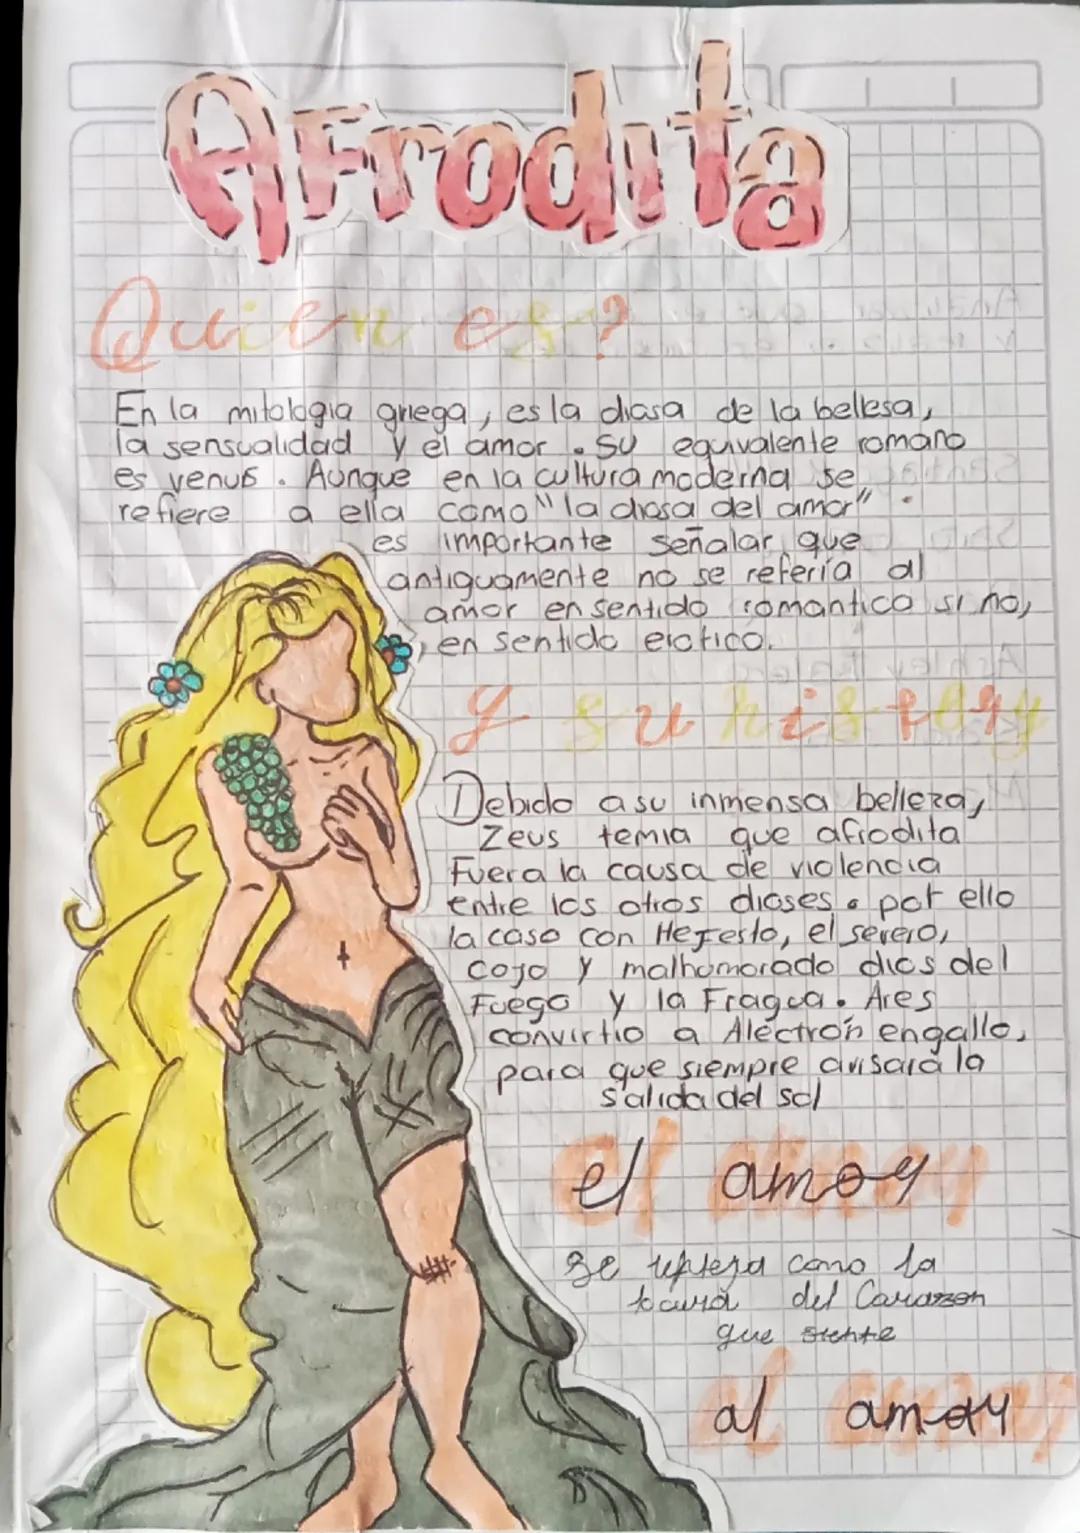 Afrodita
Quien es?
En la mitologia griega, es la diosa de la bellesa,
la sensualidad y el amor. Su equivalente romano
es venus. Aunque en la cultura moderna se
refiere a ella como "la diosa del amor".
es importante señalar que
antiguamente no se referia al
amor en sentido romantico si no,
en sentido erotico.
y su history
Debido a su inmensa belleza,
Zeus temia que afrodita
Fuera la causa de violencia
entre los otros dioses. por ello
la caso con Hefesto, el severo,
cojo y malhumorado dios del
Fuego y la Fragua. Ares
convirtio a Alectrón en gallo,
para que siempre avisara la
salida del sol
el amor
se como la
locura del Corazon
que siente
al amor